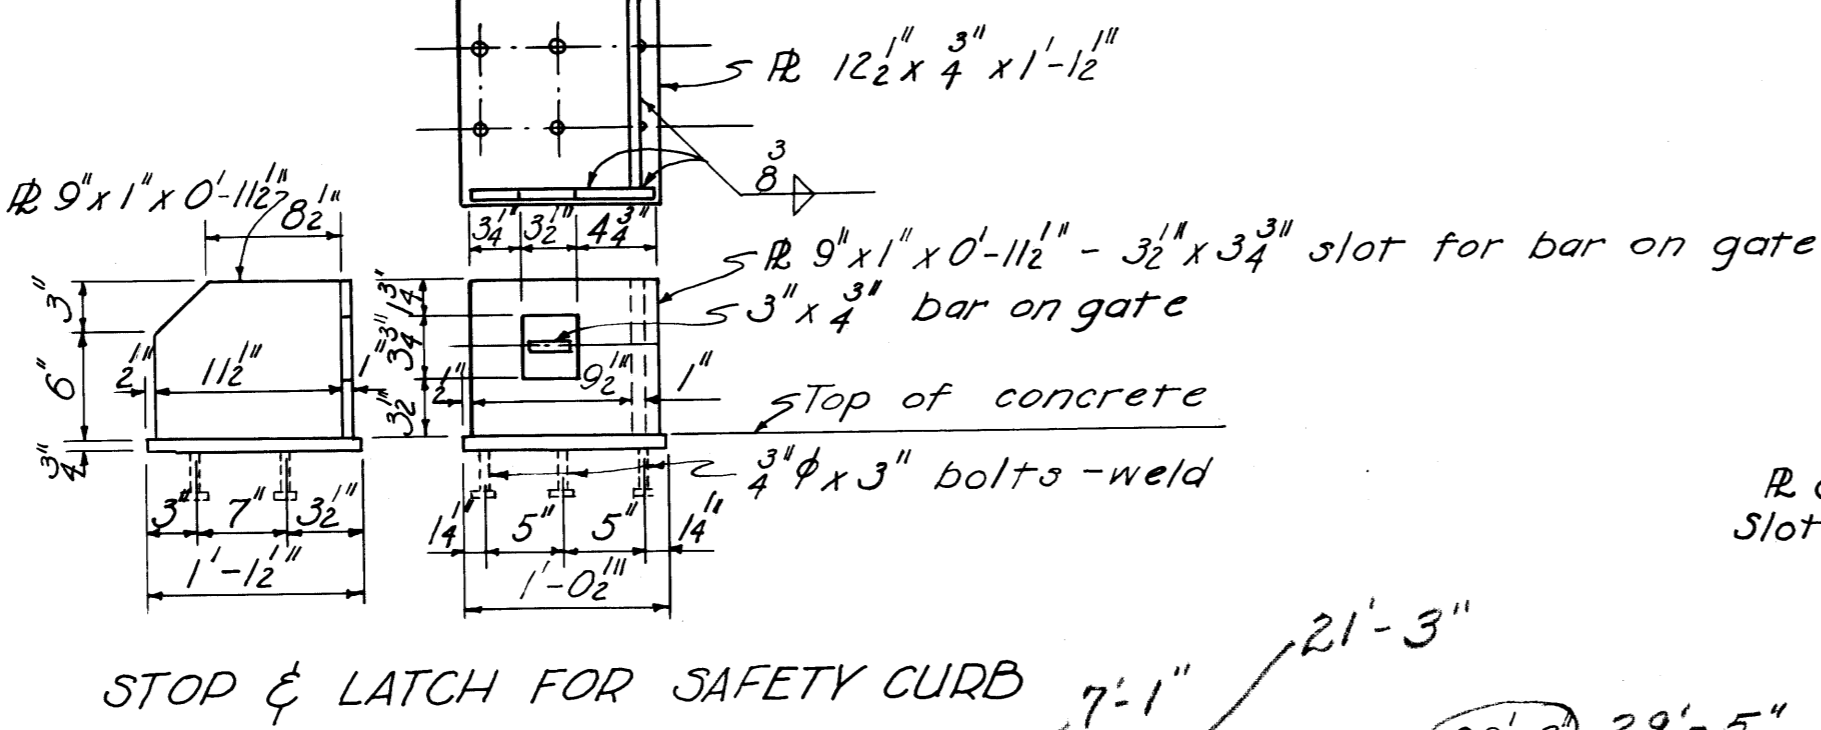 PL 12 1/2" x 3/4" x 1'-1 1/2"
3/8
PL 9" x 1" x 0'-11 1/2"
8 1/2"
3 1/4" 3 1/2" 4 3/4"
PL 9" x 1" x 0'-11 1/2" - 3 1/2" x 3 3/4" slot for bar on gate
3" x 3/4" bar on gate
3" 1 3/4"
6" 1/2" 11 1/2" 1" 3 3/4" 1/2" 9 1/2" 1"
3 1/2"
Top of concrete
3/4"
3/4" φ x 3" bolts - weld
3" 7" 3 1/2" 1 1/4" 5" 5" 1 1/4"
1'-1 1/2" 1'-0 1/2"
PL
Slot
STOP & LATCH FOR SAFETY CURB
21'-3"
7'-1"
29'-5"